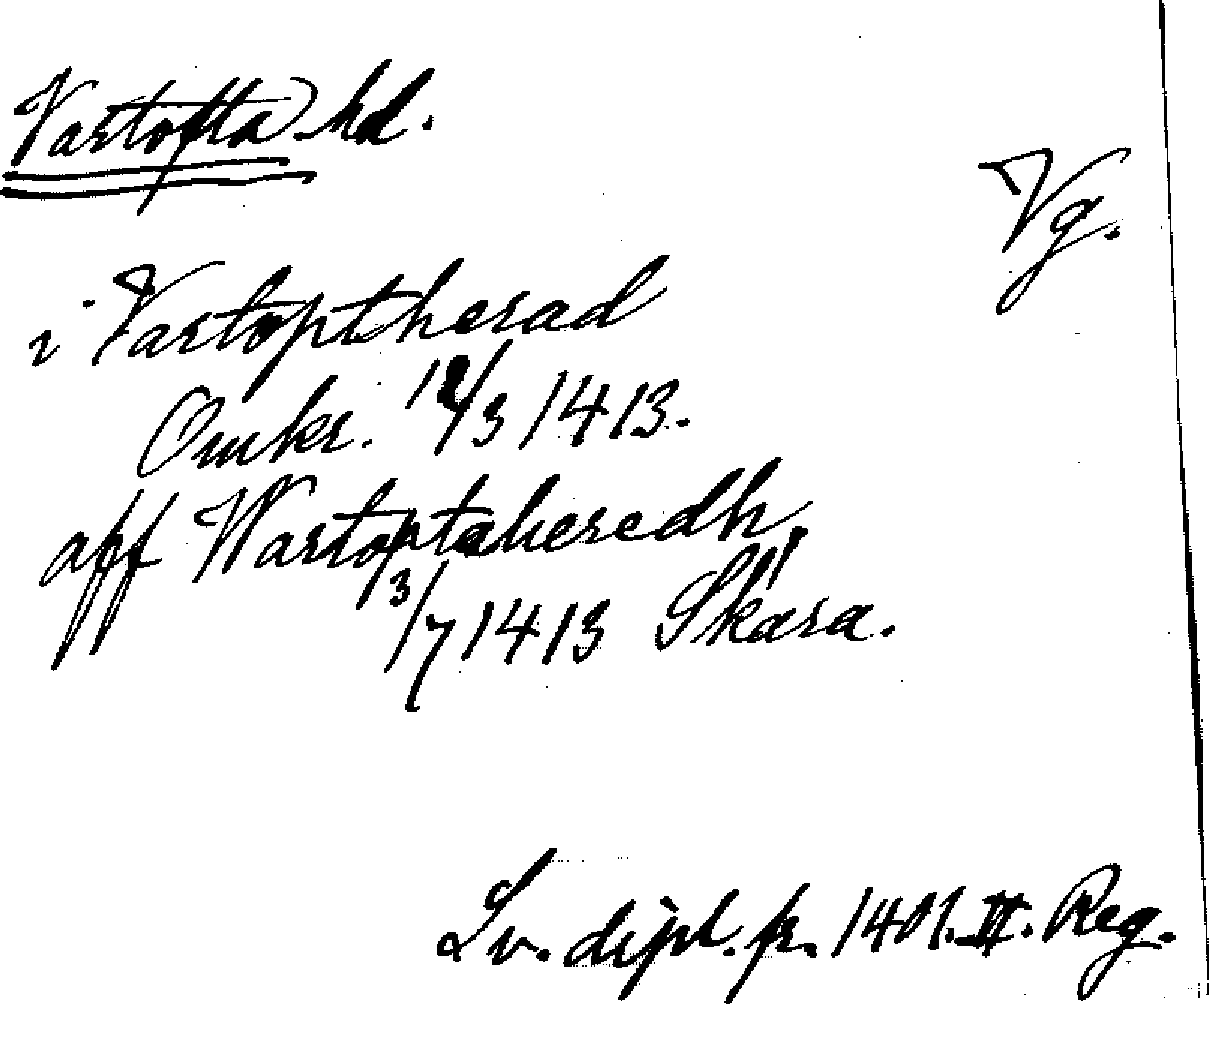 Vartofta hd.
Vg.
i Vartoptherad
Omkr. 12/3 1413.
aff Wartoptahæredh,
3/7 1413 Skara.
Sv. dipl. fr. 1401. II. Reg.